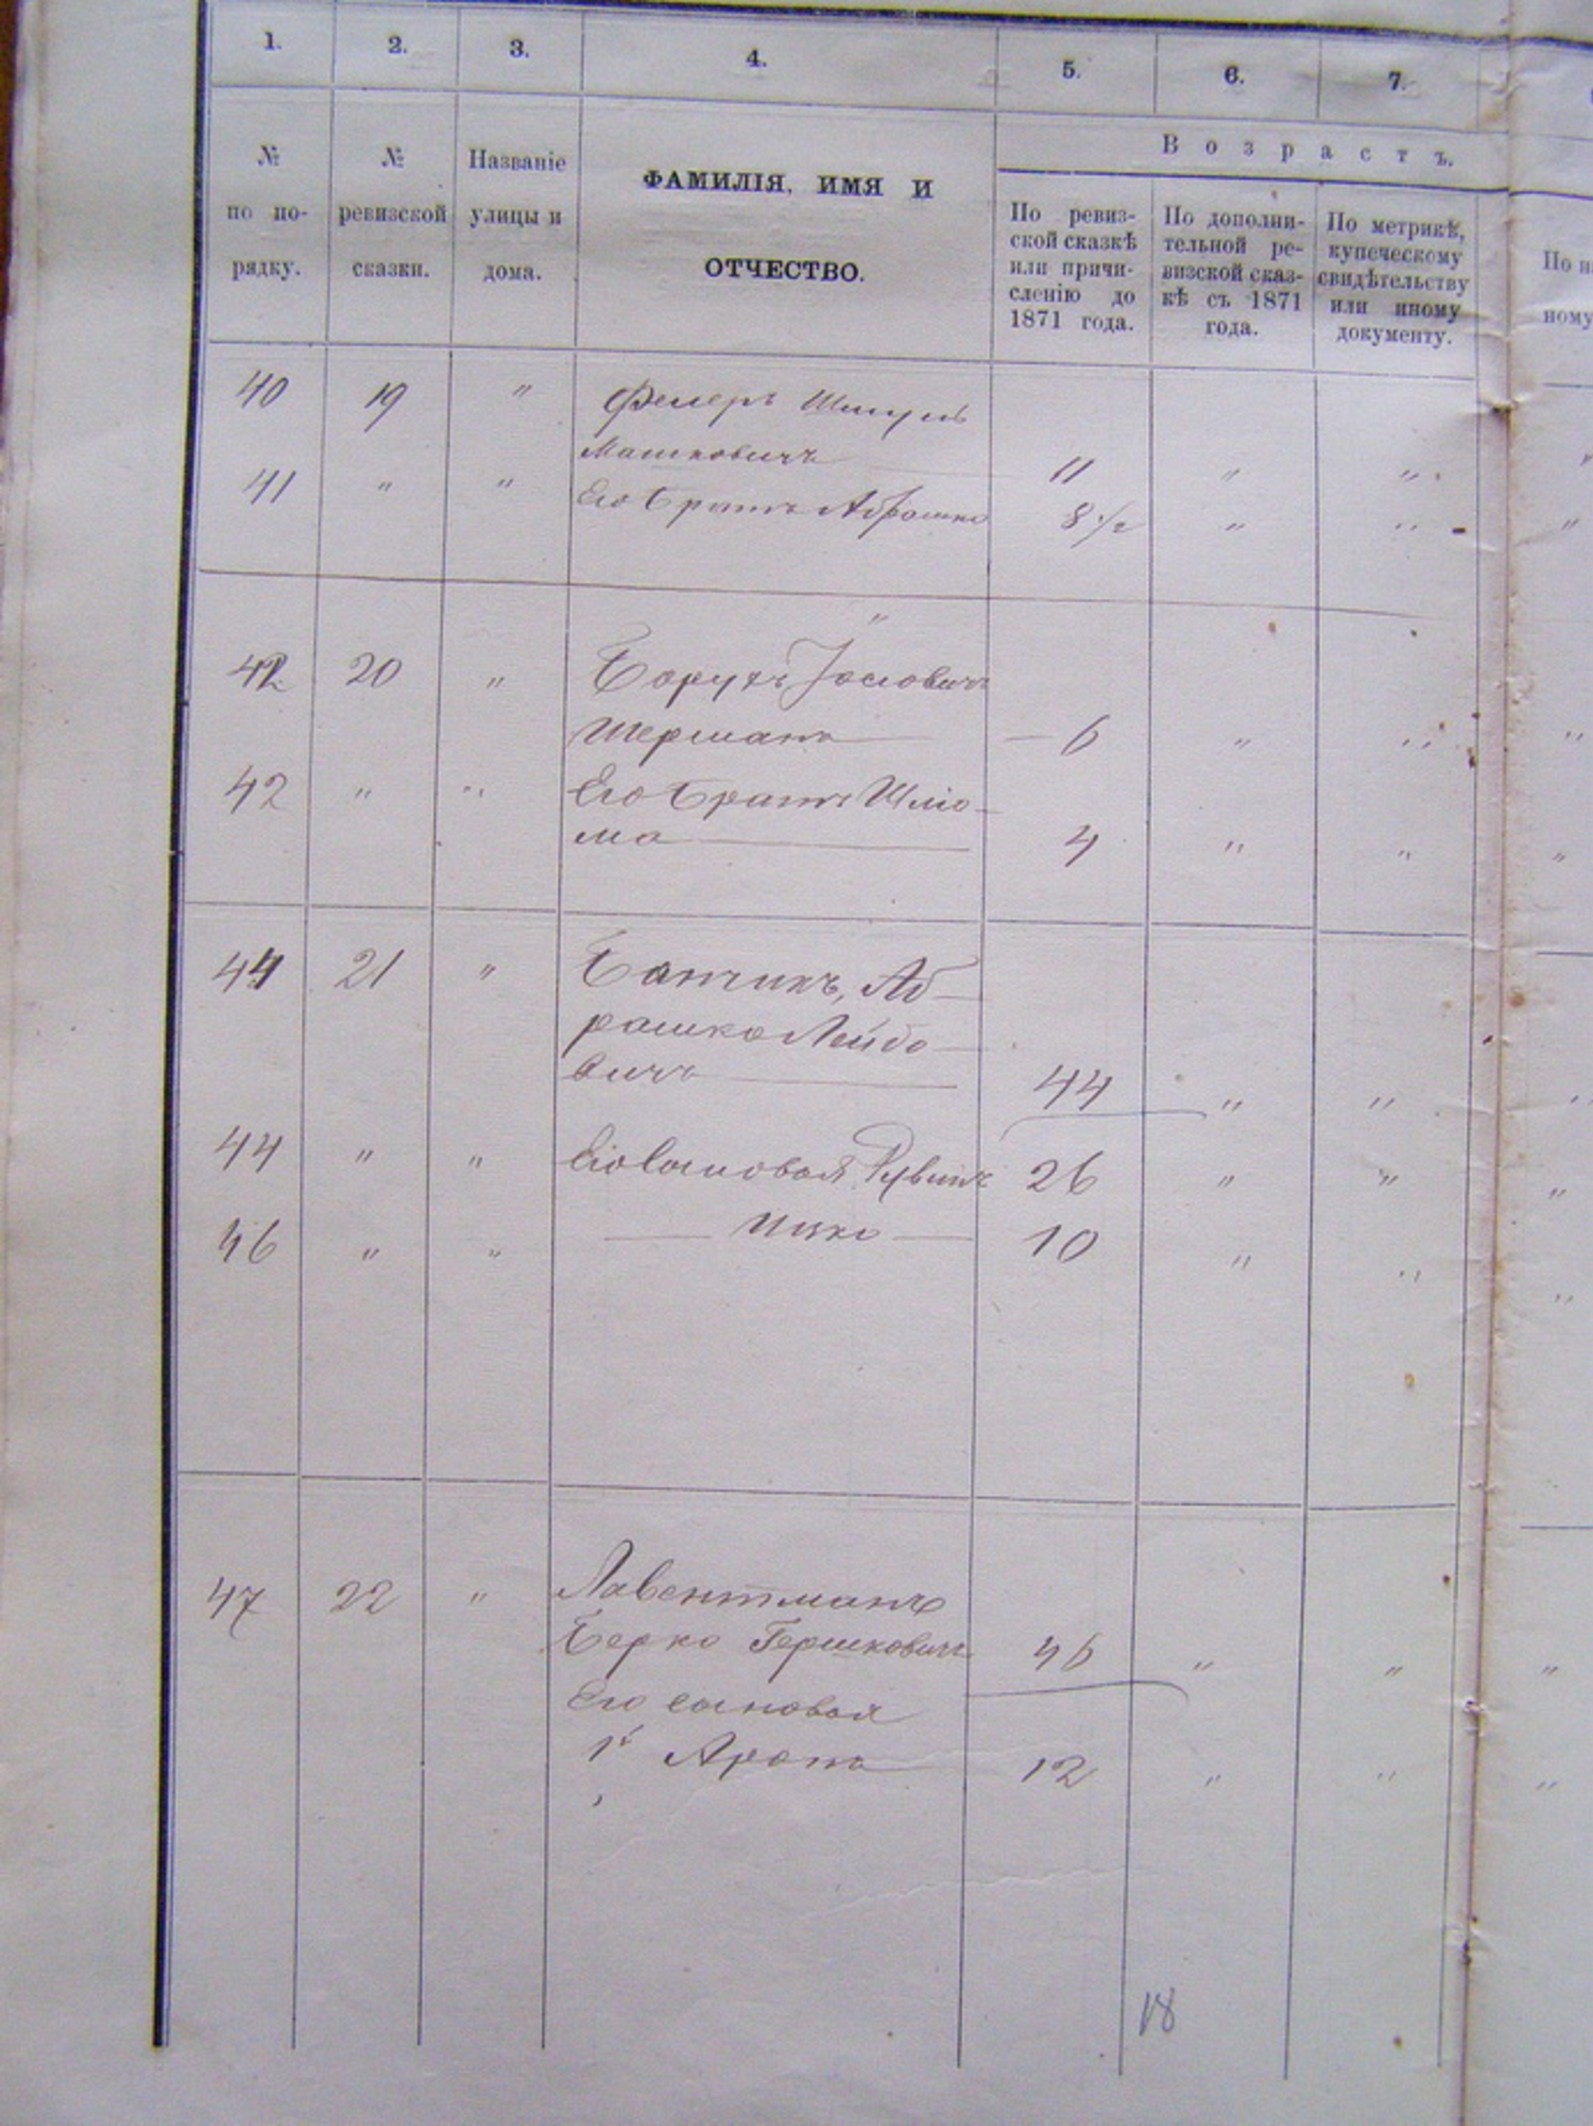 1. 2. 3. 4. 5. 6. 7.
№ по порядку.
№ ревизской сказки.
Названіе улицы и дома.
ФАМИЛІЯ, ИМЯ И
ОТЧЕСТВО.
Возрастъ.
По ревиз-
ской сказкѣ
или причи-
сленію до
1871 года.
По дополни-
тельной ре-
визской сказ-
кѣ съ 1871
года.
По метрикѣ,
купеческому
свидѣтельству
или иному
документу.
40 19 " Фелеръ Шмуль
Машковичъ 11 " "
41 " " Его братъ Абрашко 8 1/2 " "
42 20 " Борухъ Іосіовичъ
Шерманъ 6 " "
42 " " Его братъ Шліо-
ма 4 " "
44 21 " Бончикъ, Аб-
рашко Лейбо-
вичъ 44 " "
44 " " Его сыновья Рувинъ 26 " "
46 " " Ицко 10 " "
47 22 " Лавентманъ
Берко Гершковичъ 46 " "
Его сыновья
1й Аронъ 12 " "
18